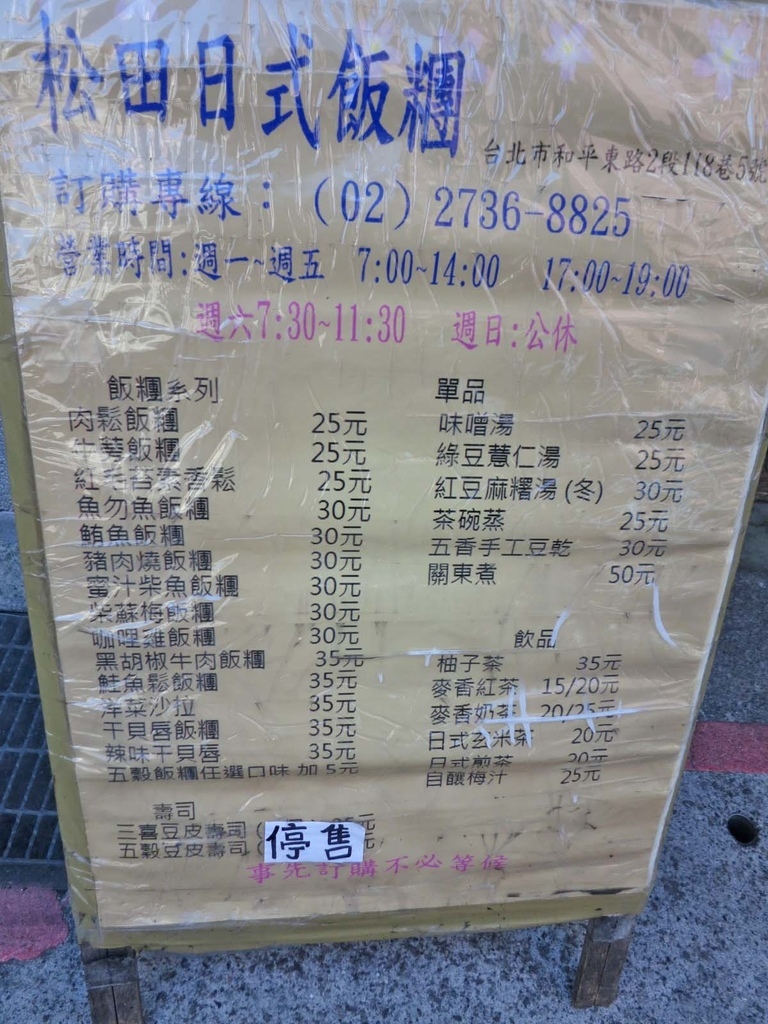 松田日式飯糰
台北市和平東路2段118巷5號
訂購專線：（02）2736-8825
營業時間:週一~週五 7:00~14:00 17:00~19:00
週六7:30~11:30 週日:公休
飯糰系列
肉鬆飯糰 25元
牛蒡飯糰 25元
紅毛苔素香鬆 25元
魚勿魚飯糰 30元
鮪魚飯糰 30元
豬肉燒飯糰 30元
蜜汁柴魚飯糰 30元
柴蘇梅飯糰 30元
咖哩雞飯糰 30元
黑胡椒牛肉飯糰 35元
鮭魚鬆飯糰 35元
洋菜沙拉 35元
干貝唇飯糰 35元
辣味干貝唇 35元
五穀飯糰任選口味 加 5元
壽司
三喜豆皮壽司 (
五穀豆皮壽司 (
停售
單品
味噌湯 25元
綠豆薏仁湯 25元
紅豆麻糬湯 (冬) 30元
茶碗蒸 25元
五香手工豆乾 30元
關東煮 50元
飲品
柚子茶 35元
麥香紅茶 15/20元
麥香奶茶 20/25元
日式玄米茶 20元
日式煎茶 20元
自釀梅汁 25元
事先訂購不必等候